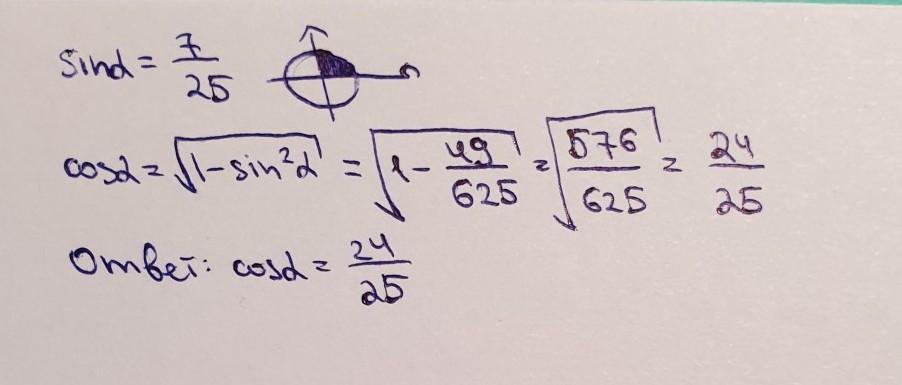 sinα = 7/25
cosα = √(1-sin²α) = √(1 - 49/625) = √(576/625) = 24/25
Ответ: cosα = 24/25